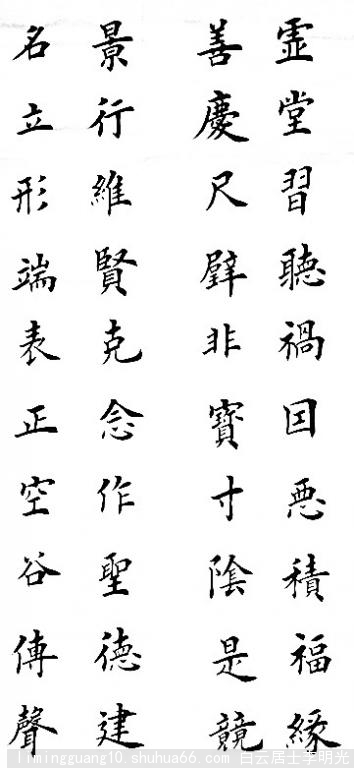 景行維賢克念作聖德建
名立形端表正空谷傳聲
虛堂習聽禍囙悪積福緣
善慶尺璧非寶寸陰是競
limingguang10.shuhua66.com 白云居士李明光